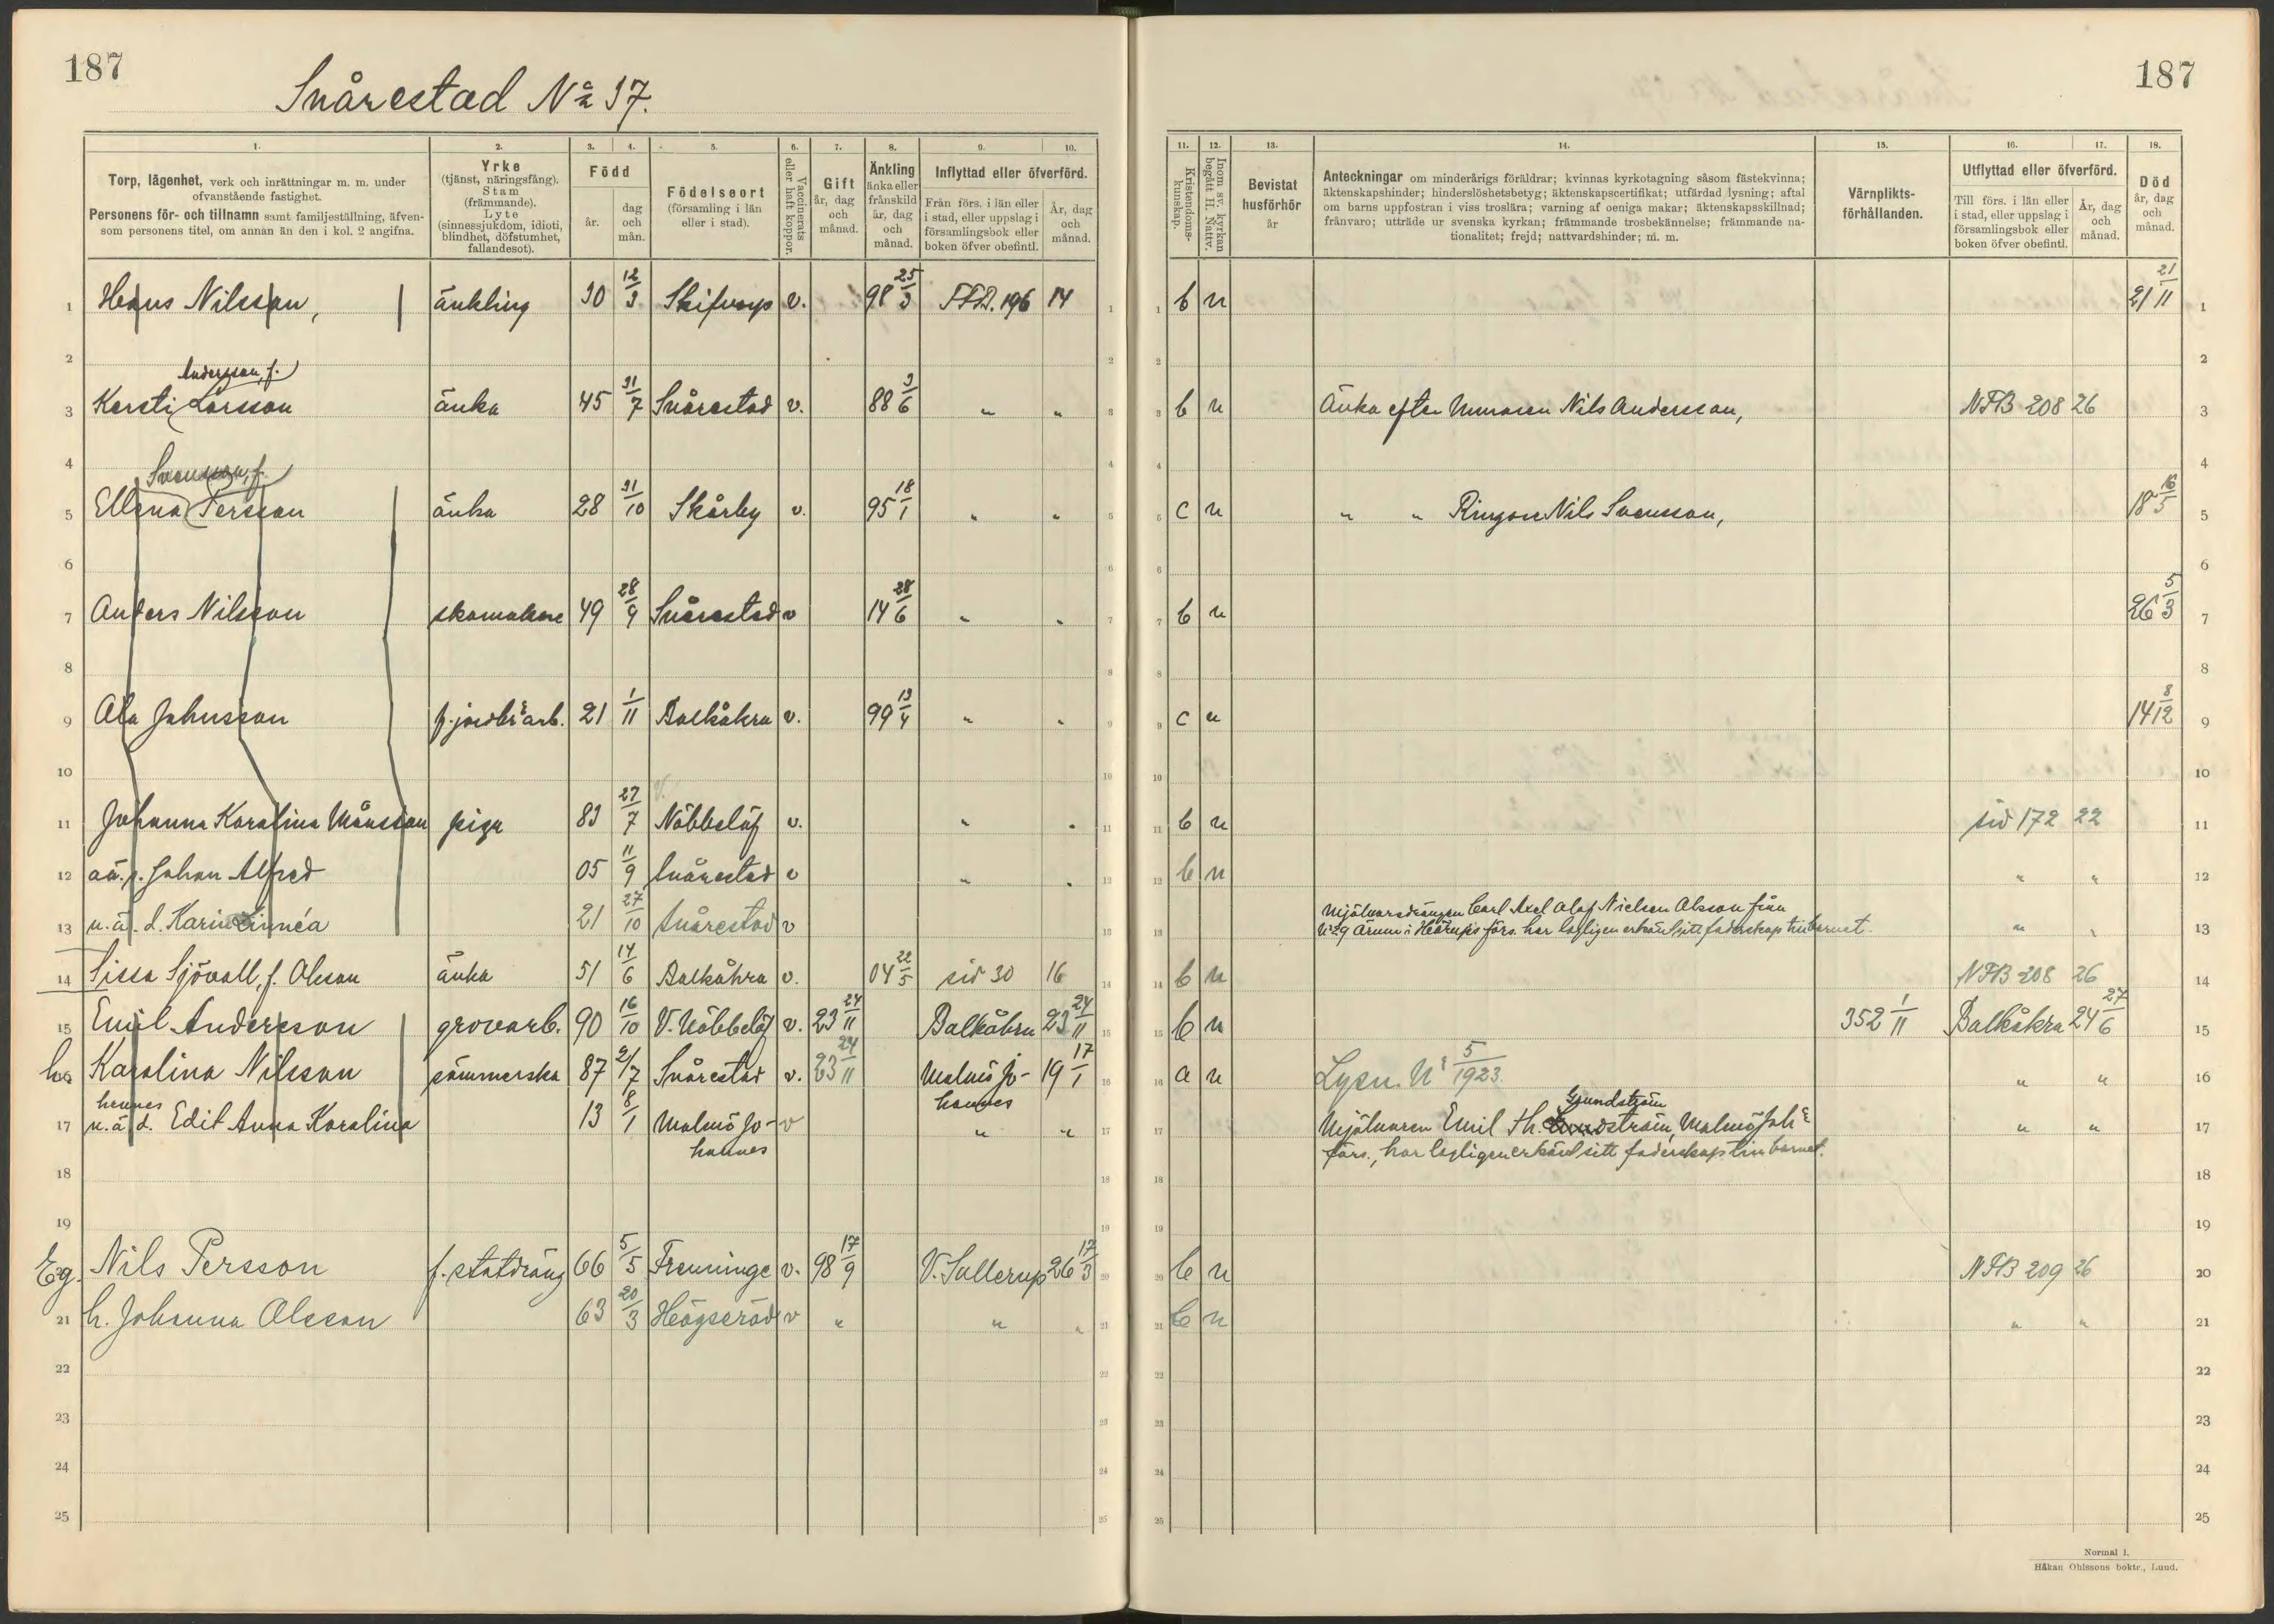 187
Snårestad No 37.
187
1.
2.
3.
4.
5.
6.
7.
8.
9.
10.
Torp, lägenhet, verk och inrättningar m. m. under
ofvanstående fastighet.
Personens för- och tillnamn samt familjeställning, äfven-
som personens titel, om annan än den i kol. 2 angifna.
Yrke
(tjänst, näringsfång).
Stam
(främmande).
Lyte
(sinnessjukdom, idioti,
blindhet, döfstumhet,
fallandesot).
Född
år.
dag
och
mån.
Födelseort
(församling i län
eller i stad).
Vaccinerats
eller haft koppor.
Gift
år, dag
och
månad.
Änkling
änka eller
frånskild
år, dag
och
månad.
Inflyttad eller öfverförd.
Från förs. i län eller
i stad, eller uppslag i
församlingsbok eller
boken öfver obefintl.
År, dag
och
månad.
11.
12.
13.
14.
15.
16.
17.
18.
Kristendoms-
kunskap.
Inom sv. kyrkan
begått H. Nattv.
Bevistat
husförhör
år
Anteckningar om minderårigs föräldrar; kvinnas kyrkotagning såsom fästekvinna;
äktenskapshinder; hinderslöshetsbetyg; äktenskapscertifikat; utfärdad lysning; aftal
om barns uppfostran i viss troslära; varning af oeniga makar; äktenskapsskillnad;
frånvaro; utträde ur svenska kyrkan; främmande trosbekännelse; främmande na-
tionalitet; frejd; nattvardshinder; m. m.
Värnplikts-
förhållanden.
Utflyttad eller öfverförd.
Till förs. i län eller
i stad, eller uppslag i
församlingsbok eller
boken öfver obefintl.
År, dag
och
månad.
Död
år, dag
och
månad.
1 Hans Nilsson, änkling 30 12/3 Skifvarp v. 98 25/3 FFB. 196 14 b n 21 21/11 1
2 2
Andersson, f.
3 Kersti Larsson änka 45 31/7 Snårestad v. 88 3/6 " " b n Änka efter Muraren Nils Andersson, NFB 208 26 3
4 4
Svensson, f.
5 Ellena Persson änka 28 31/10 Skårby v. 95 18/1 " " c n " " Ringaren Nils Svensson, 18 16/5 5
6 6
7 Anders Nilsson skomakare 49 28/9 Snårestad v 14 28/6 " " b n 26 5/3 7
8 8
9 Ola Johnsson f. jordbr. arb. 21 1/11 Balkåkra v. 99 13/4 " " c n 14 8/12 9
10 10
11 Johanna Karolina Månsson piga 83 27/7 V. Nöbbelöf v. " " b n sid 172 22 11
12 oä. s. Johan Alfred 05 11/9 Snårestad v " " b n " " 12
Mjölnaredrängen Carl Axel Olof Nielsen Olsson från
13 u. ä. d. Karin Linnéa 21 27/10 Snårestad v No 9 Årum i Hedrups förs. har lagligen erkänt sitt faderskap till barnet. " " 13
14 Sissa Sjövall, f. Olsson änka 51 14/6 Balkåkra v. 04 22/5 sid 30 16 b n NFB 208 26 14
15 Emil Andersson grovarb. 90 16/10 V. Nöbbelöf v. 23 24/11 Balkåkra 23 24/11 b n 352 1/11 Balkåkra 24 27/6 15
h. Karolina Nilsson sömmerska 87 2/7 Snårestad v. 23 24/11 Malmö Jo- 19 17/1 a n Lysn. No 5/1923. " " 16
hennes hannes Grundström
17 u. ä. d. Edit Anna Karolina 13 8/1 Malmö Jo- v " " Mjölnaren Emil Th. Malmö Joh: " " 17
hannes förs., har lagligen erkänt sitt faderskap till barnet.
18 18
19 19
Eg. Nils Persson f. statdräng 66 5/5 Frenninge v. 98 17/9 V. Sallerup 26 17/3 b n NFB 209 26 20
21 h. Johanna Olsson 63 20/3 Högseröd v " " " b n " " 21
22 22
23 23
24 24
25 25
Normal 1.
Håkan Ohlssons boktr., Lund.